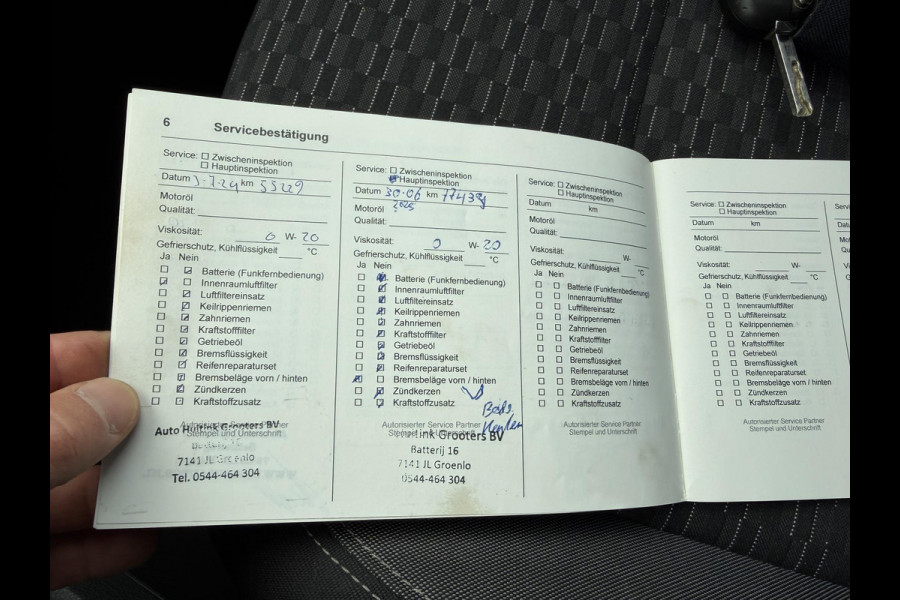 6 Servicebestätigung
Service: ☐ Zwischeninspektion
☐ Hauptinspektion
Datum 3-7-24 km 55229
Motoröl
Qualität:
Viskosität: 0 W- 20
Gefrierschutz, Kühlflüssigkeit °C
Ja Nein
Batterie (Funkfernbedienung)
Innenraumluftfilter
Luftfiltereinsatz
Keilrippenriemen
Zahnriemen
Kraftstofffilter
Getriebeöl
Bremsflüssigkeit
Reifenreparaturset
Bremsbeläge vorn / hinten
Zündkerzen
Kraftstoffzusatz
Autorisierter Service Partner
Stempel und Unterschrift
Grooters BV
7141 JL Groenlo
Tel. 0544-464 304
Service: ☐ Zwischeninspektion
Hauptinspektion
Datum 30-06 km
2025
Motoröl
Qualität:
Viskosität: 0 W- 20
Gefrierschutz, Kühlflüssigkeit °C
Ja Nein
Batterie (Funkfernbedienung)
Innenraumluftfilter
Luftfiltereinsatz
Keilrippenriemen
Zahnriemen
Kraftstofffilter
Getriebeöl
Bremsflüssigkeit
Reifenreparaturset
Bremsbeläge vorn / hinten
Zündkerzen
Kraftstoffzusatz
Autorisierter Service Partner
Stempel und Unterschrift
ink Grooters BV
Batterij 16
7141 JL Groenlo
0544-464 304
Service: ☐ Zwischeninspektion
☐ Hauptinspektion
Datum km
Motoröl
Qualität:
Viskosität: W-
Gefrierschutz, Kühlflüssigkeit °C
Ja Nein
☐ ☐ Batterie (Funkfernbedienung)
☐ ☐ Innenraumluftfilter
☐ ☐ Luftfiltereinsatz
☐ ☐ Keilrippenriemen
☐ ☐ Zahnriemen
☐ ☐ Kraftstofffilter
☐ ☐ Getriebeöl
☐ ☐ Bremsflüssigkeit
☐ ☐ Reifenreparaturset
☐ ☐ Bremsbeläge vorn / hinten
☐ ☐ Zündkerzen
☐ ☐ Kraftstoffzusatz
Autorisierter Service Partner
Stempel und Unterschrift
Service: ☐ Zwischeninspektion
☐ Hauptinspektion
Datum km
Motoröl
Qualität:
Viskosität: W-
Gefrierschutz, Kühlflüssigkeit °C
Ja Nein
☐ ☐ Batterie (Funkfernbedienung)
☐ ☐ Innenraumluftfilter
☐ ☐ Luftfiltereinsatz
☐ ☐ Keilrippenriemen
☐ ☐ Zahnriemen
☐ ☐ Kraftstofffilter
☐ ☐ Getriebeöl
☐ ☐ Bremsflüssigkeit
☐ ☐ Reifenreparaturset
☐ ☐ Bremsbeläge vorn / hinten
☐ ☐ Zündkerzen
☐ ☐ Kraftstoffzusatz
Autorisierter Service Partner
Stempel und Unterschrift